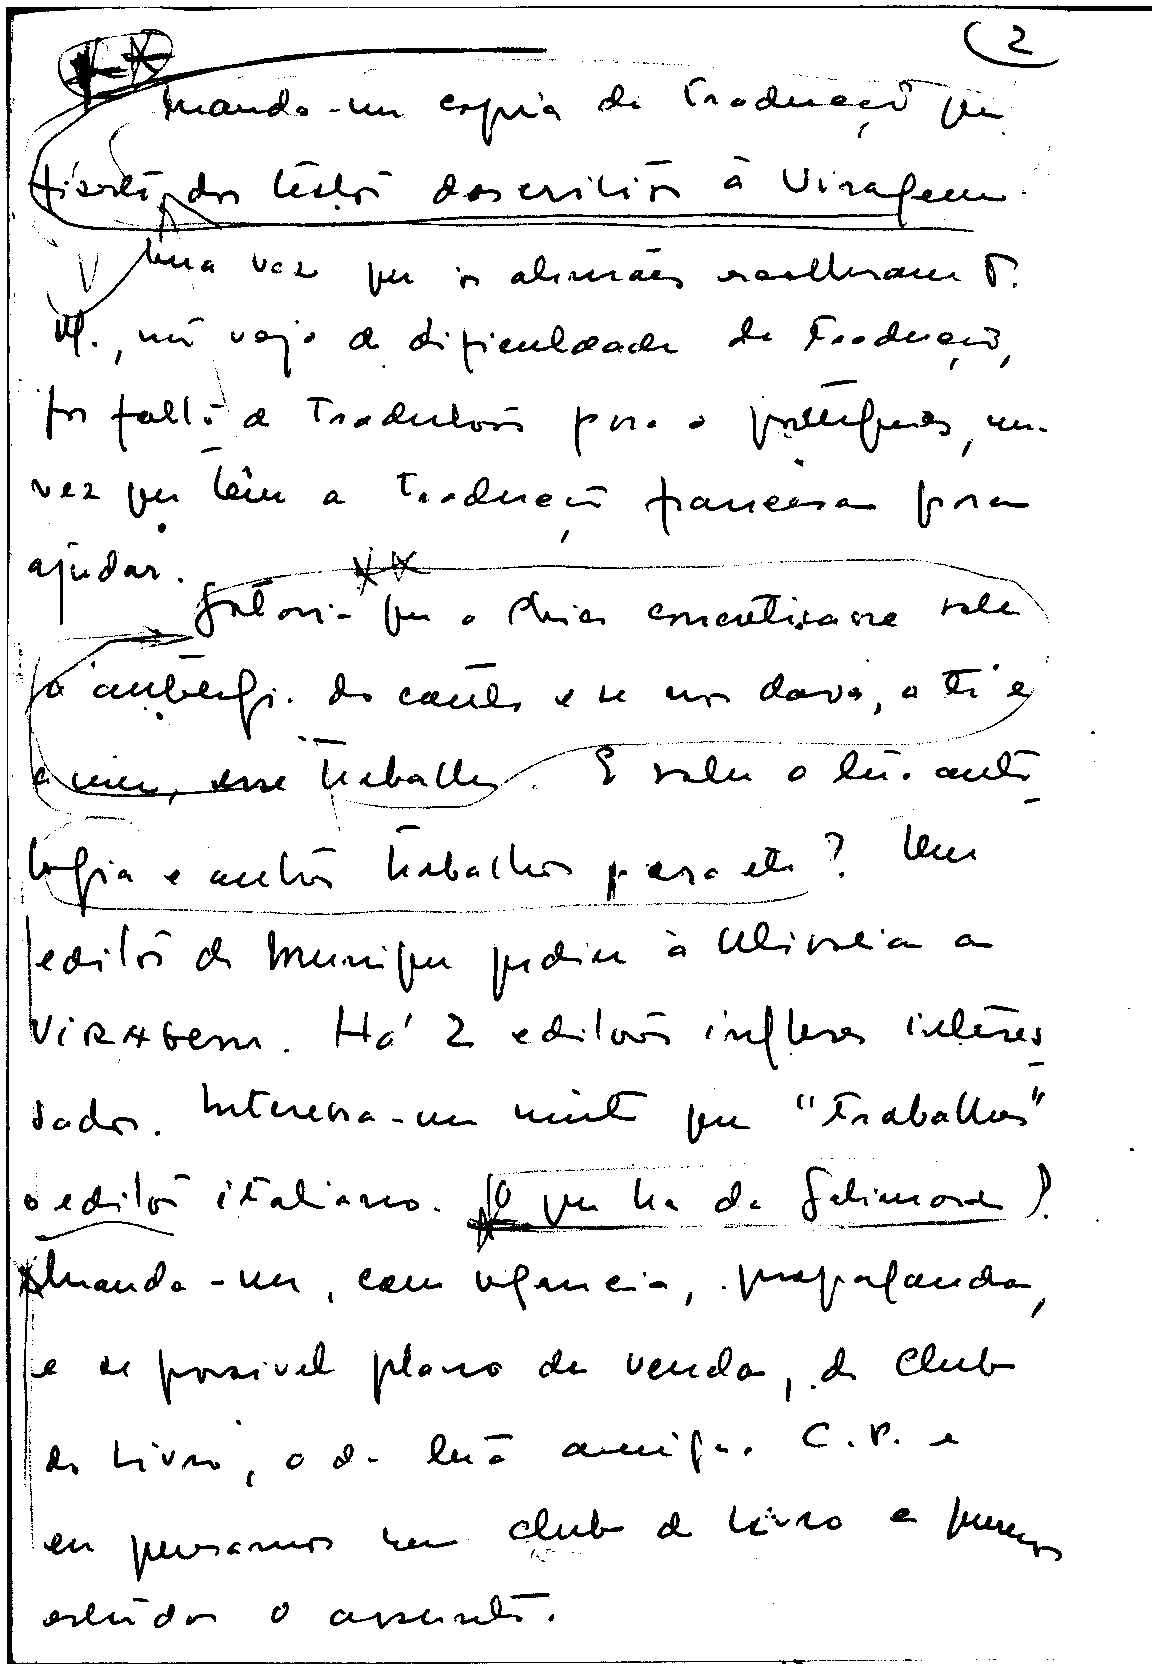 2
Manda-me copia da traducção que
fizeste dos textos descritivos à Viragem.
Uma vez que os alemães escolheram T.
M., não vejo a dificuldade da traducção,
por falta de tradutores para o português, uma
vez que têm a traducção francesa para
ajudar.
Gostaria que a ideia concretisasse sobre
a antologia do conto e se nos dava, a ti e
a mim, esse trabalho. E sobre a tua anto
logia e outros trabalhos para ela? Um
editor de Munique pediu à Ulisseia a
VIRAGEM. Há 2 editores ingleses interes
sados. Interessa-me muito que "trabalhes"
o editor italiano. (O que ha da Galimard?
Manda-me, com urgencia, propaganda,
e se possivel plano de venda, do Club
do Livro, o da tua amiga. C.P. e
eu pensamos num club do livro e queremos
estudar o assunto.